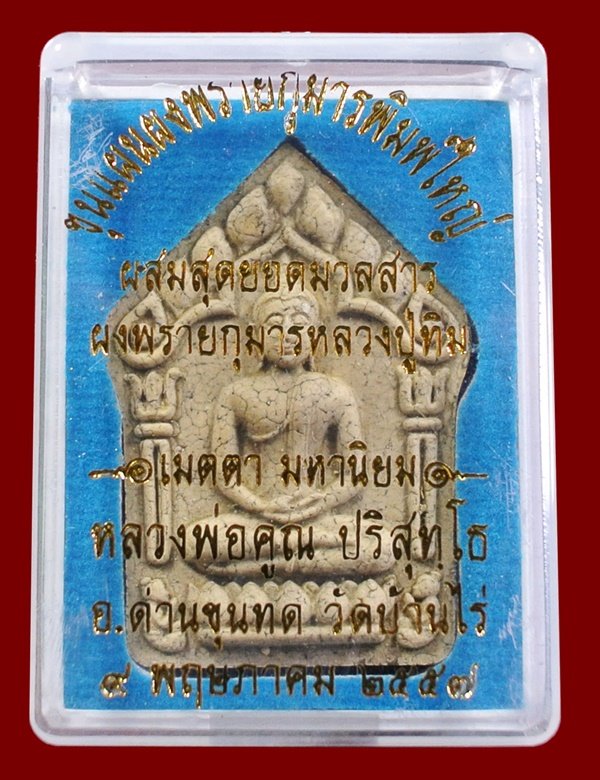 ขุนแผนผงพรายกุมารพิมพ์ใหญ่
ผสมสุดยอดมวลสาร
ผงพรายกุมารหลวงปู่ทิม
เมตตา มหานิยม
หลวงพ่อคูณ ปริสุทฺโธ
อ.ด่านขุนทด วัดบ้านไร่
๙ พฤษภาคม ๒๕๕๗